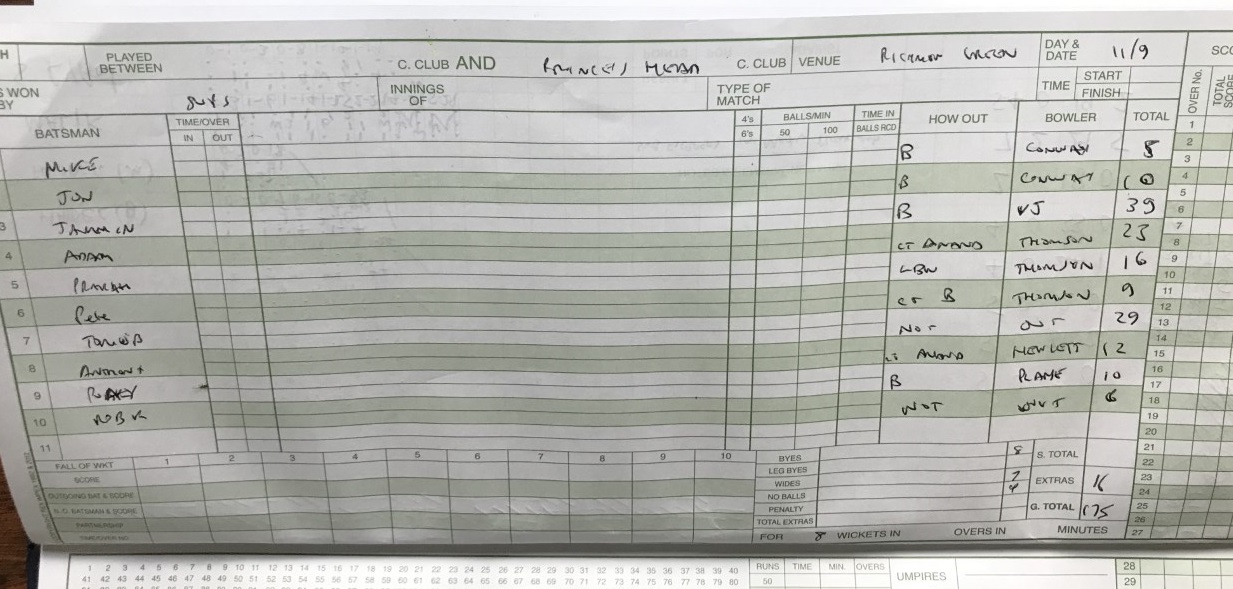 H PLAYED BETWEEN C. CLUB AND PRINCES HEAD C. CLUB VENUE RICHMOND GREEN DAY & DATE 11/9 SCO
S WON BY INNINGS OF TYPE OF MATCH TIME START FINISH OVER No. TOTAL SCORE
BATSMAN TIME/OVER IN OUT 4's 6's BALLS/MIN 50 100 TIME IN BALLS RCD HOW OUT BOWLER TOTAL 1
MIKE B CONWAY 5 2
3
JON B CONWAY 10 4
5
3 B VJ 39 6
7
4 ADAM CT ANAND THOMSON 23 8
9
5 LBW THOMSON 16 10
11
6 Pete CT B THOMSON 9 12
7 NOT OUT 29 13
14
8 ANTHONY CT ANAND HEWLETT 12 15
16
9 B PLANE 10 17
10 ROB K NOT OUT 6 18
19
11 20
FALL OF WKT 1 2 3 4 5 6 7 8 9 10 BYES 8 S. TOTAL 21
SCORE LEG BYES 22
OUTGOING BAT & SCORE WIDES EXTRAS 16 23
N. O. BATSMAN & SCORE NO BALLS 24
PARTNERSHIP PENALTY G. TOTAL 175 25
TIME/OVER NO TOTAL EXTRAS 26
FOR 8 WICKETS IN OVERS IN MINUTES 27
1 2 3 4 5 6 7 8 9 10 11 12 13 14 15 16 17 18 19 20 21 22 23 24 25 26 27 28 29 30 31 32 33 34 35 36 37 38 39 40 RUNS TIME MIN. OVERS UMPIRES 28
41 42 43 44 45 46 47 48 49 50 51 52 53 54 55 56 57 58 59 60 61 62 63 64 65 66 67 68 69 70 71 72 73 74 75 76 77 78 79 80 50 29